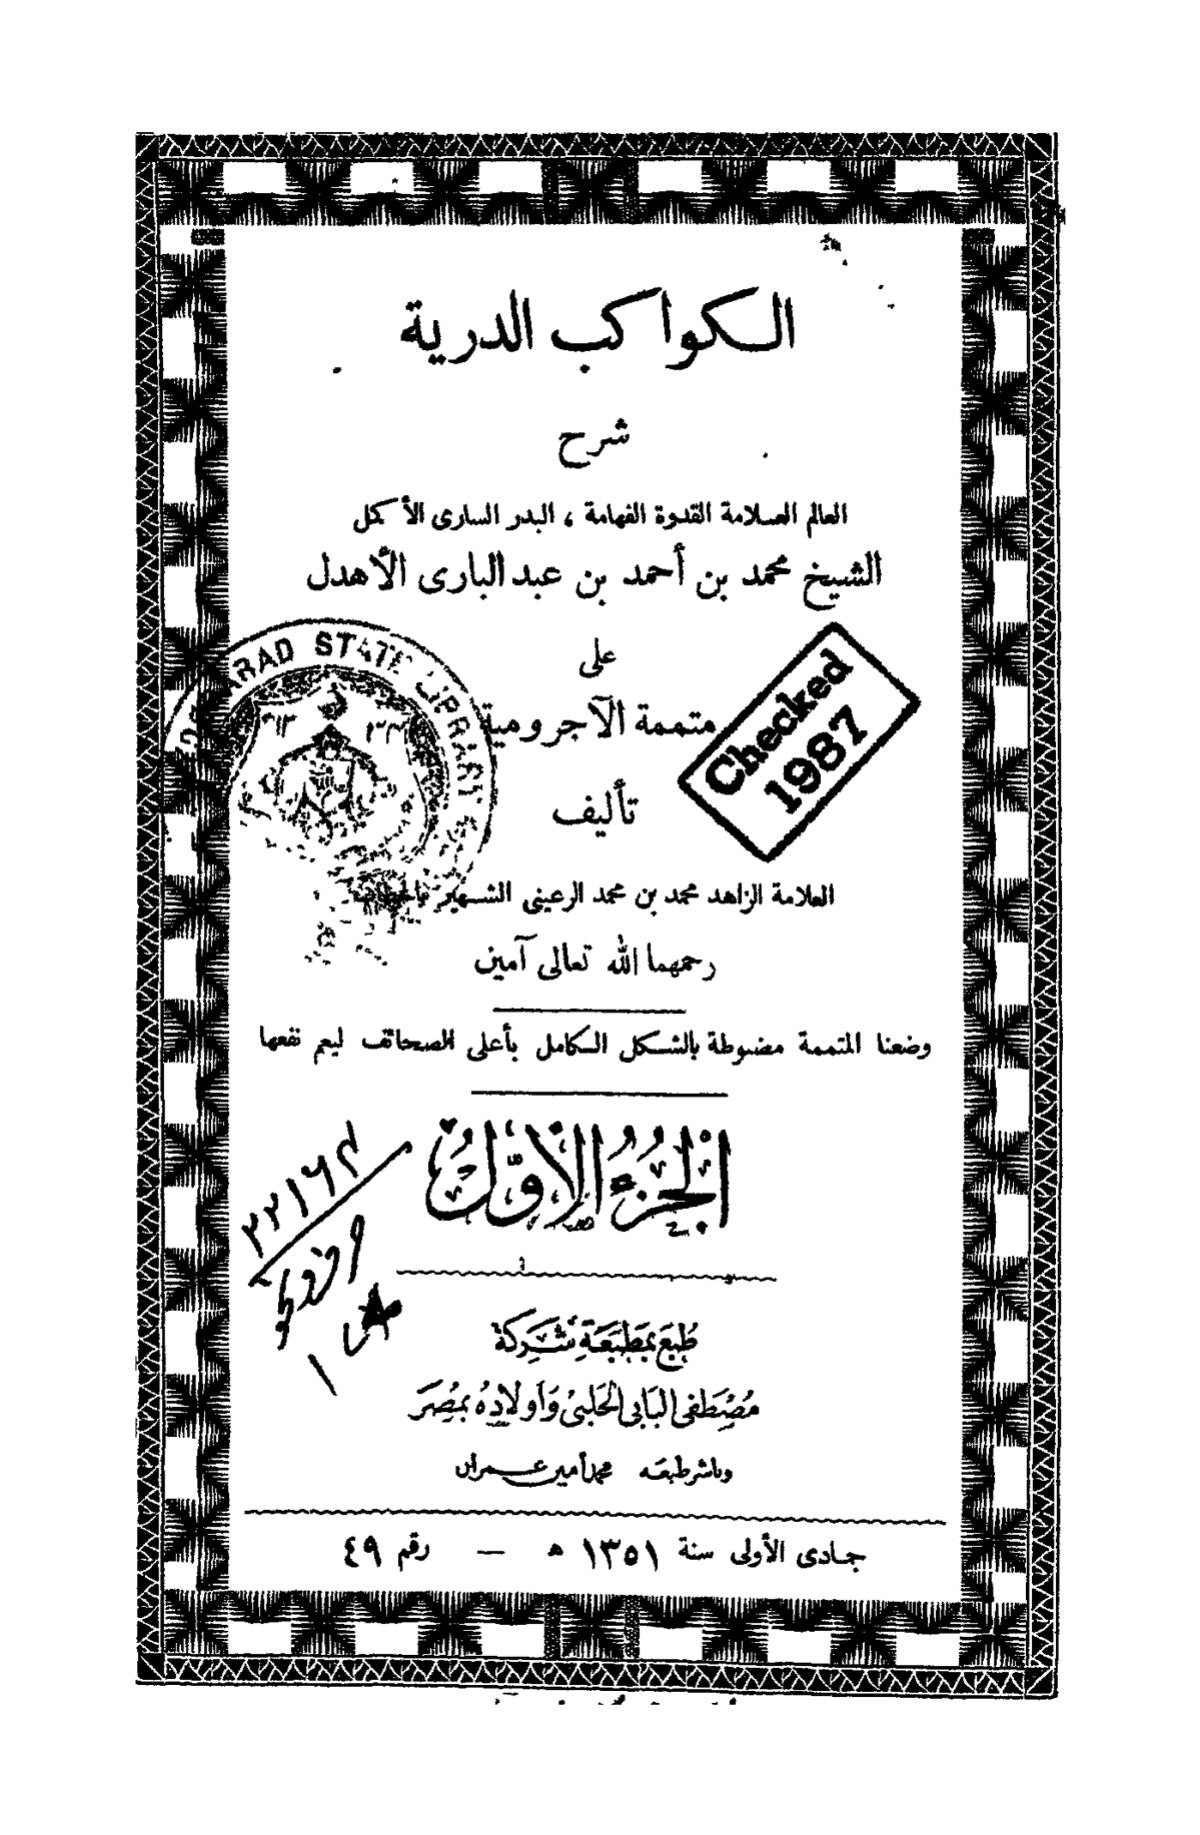 الكواكب الدرية
شرح
العالم العلامة القدوة الفهامة ، البدر السارى الأكمل
الشيخ محمد بن أحمد بن عبد البارى الأهدل
على
متممة الآجرومية
تأليف
العلامة الزاهد محمد بن محمد الرعينى الشهير بالحطاب
رحمهما الله تعالى آمين
STATE LIBRARY
Checked
1987
وضعنا المتممة مضبوطة بالشكل الكامل بأعلى الصحائف ليعم نفعها
الْجُزْءُ الْأَوَّلُ
٢٢١٦٢
طُبِعَ بِمَطْبَعَةِ شَرِكَة
مُصْطَفَى الْبَابِى الْحَلَبِىّ وَأَوْلَادُه بِمِصْر
وباشر طبعه محمد أمين عمران
جمادى الأولى سنة ١٣٥١ هـ — رقم ٤٩